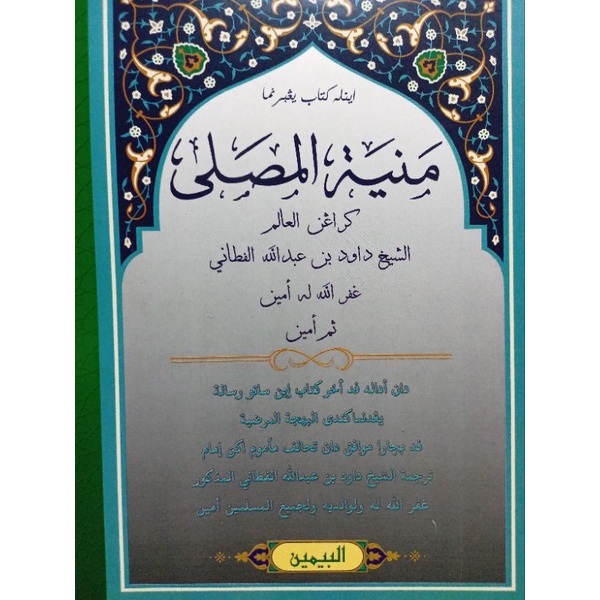 اينله كتاب يڠبرنما
منية المصلى
كراڠن العالم
الشيخ داود بن عبدالله الفطاني
غفر الله له أمين
ثم أمين
دان أداله ڤد أخر كتاب إين ساتو رسالة
يڠدنماكندي البهجة المرضية
ڤد بچارا موافق دان تخالف مأموم اكن إمام
ترجمة الشيخ داود بن عبدالله الفطاني المذكور
غفر الله له ولوالديه ولجميع المسلمين أمين
البيمين